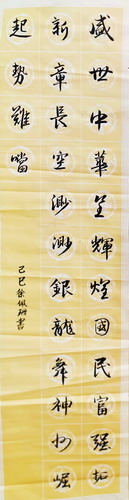 盛世中華呈輝煌國民富强拓
新章長空渺渺銀龍舞神州崛
起勢難擋
乙巳徐佩珊書